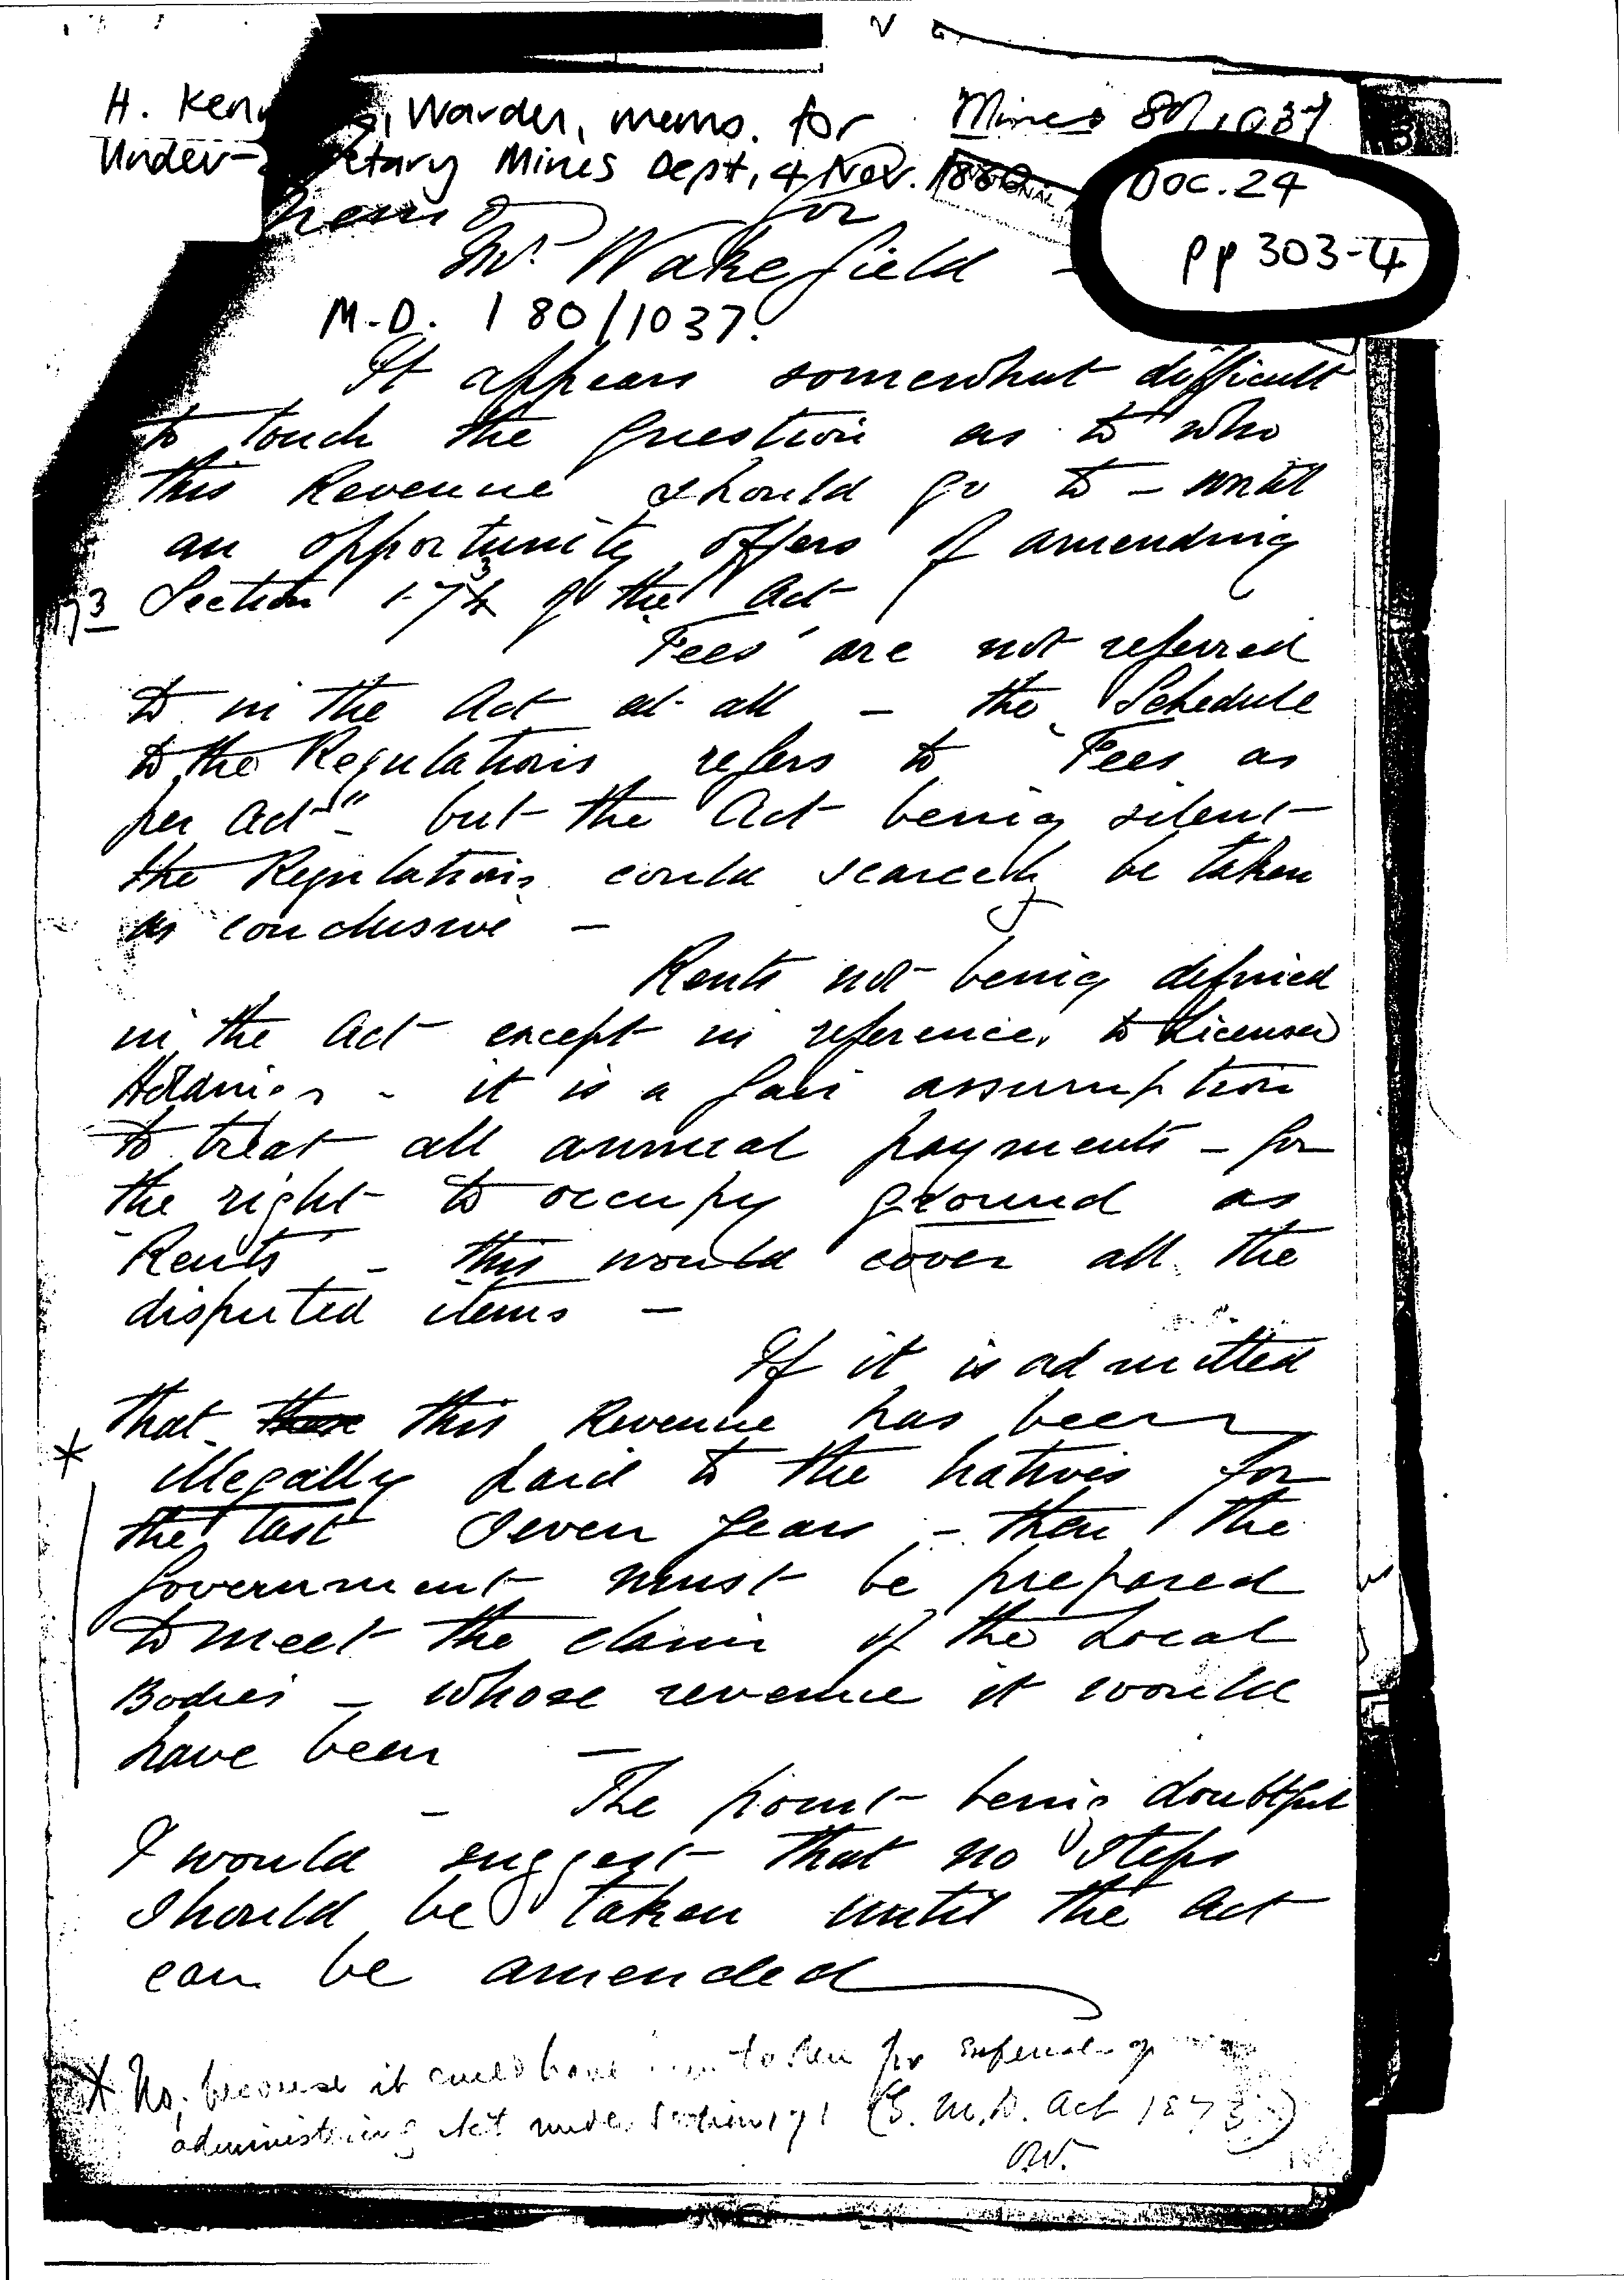 H. Ken Warden, memo. for Mines 80/1037
Under- etary Mines Dept, 4 Nov. 1880
DOC. 24
pp 303-4
Memo for
Mr. Wakefield -
M.D. / 80/1037.
It appears somewhat difficult
to touch the question as to who
this Revenue should go to - until
an opportunity offers of amending
173 Section 173 of the Act
"Fees" are not referred
to in the Act at all - the Schedule
to the Regulations refers to "Fees as
per Act" - but the Act being silent
the Regulations could scarcely be taken
as conclusive -
Rents not being defined
in the Act except in reference to Licensed
Holdings - it is a fair assumption
to treat all annual payments - for
the right to occupy ground as
"Rents" - this would cover all the
disputed items -
If it is admitted
that these this Revenue has been
* illegally paid to the natives for
the last seven years - then the
Government must be prepared
to meet the claim of the Local
Bodies - whose revenue it would
have been -
- The point being doubtful
I would suggest that no steps
should be taken until the Act
can be amended
* No, because it could have been taken for expenses of
administering Act under Section 171 (G. M. D. Act 1873)
O.W.